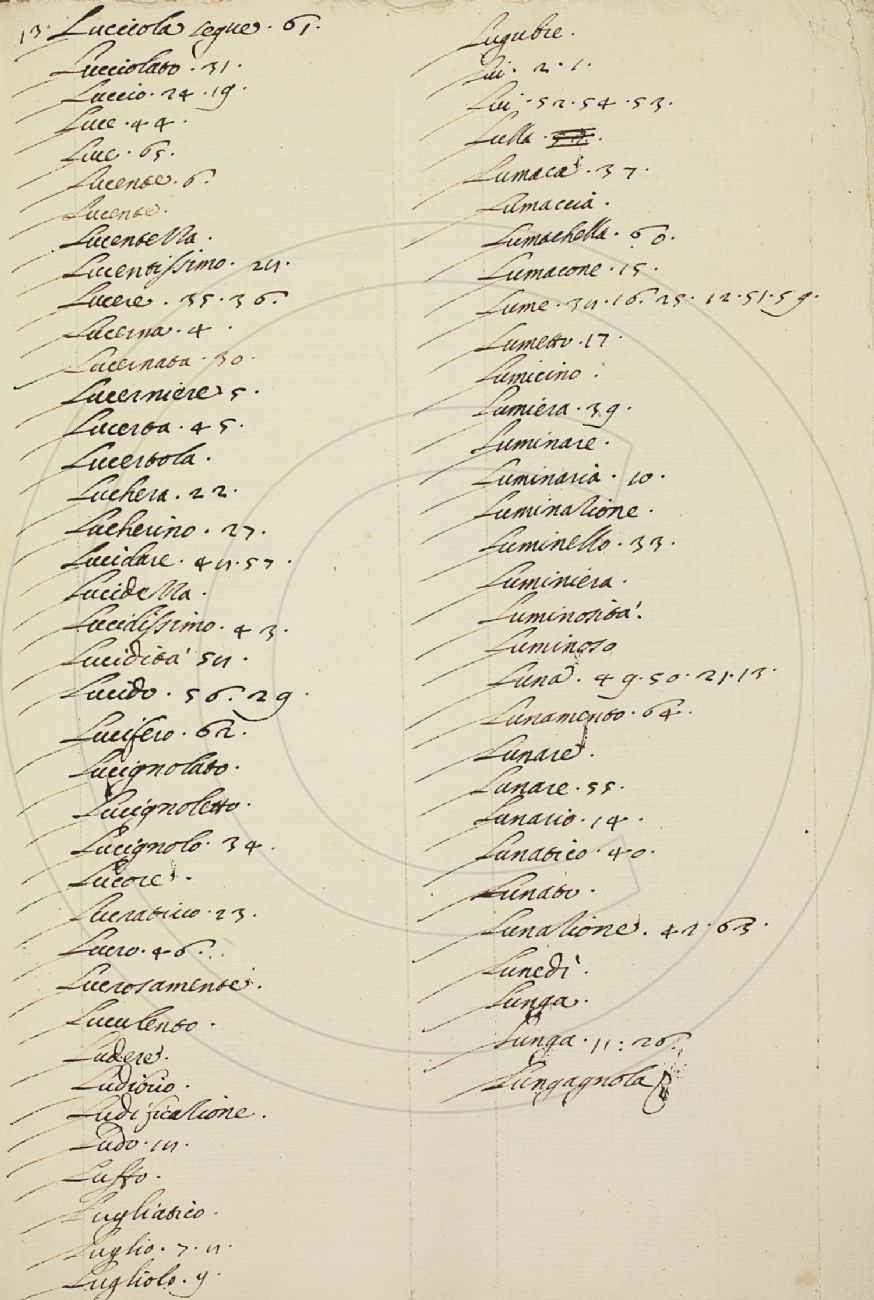 13. Lucciola segue. 61.
Lucciolato. 31.
Luccio. 24. 19.
Luce. 44.
Luce. 65.
Lucente. 6.
Lucente.
Lucentella.
Lucentissimo.
Lucere. 35. 36.
Lucerna. 4.
Lucernata. 30.
Lucerniere 5.
Lucerta. 45.
Lucertola.
Luchera. 22.
Lucherino. 27.
Lucidare. 57.
Lucidella.
Lucidissimo. 43.
Lucidità
Lucido. 56. 29.
Lucifero. 62.
Lucignolato.
Lucignoletto.
Lucignolo. 34.
Lucore.
Lucrativo. 23.
Lucro. 46.
Lucrosamente.
Luculento.
Ludere.
Ludibrio.
Ludificazione.
Ludo.
Luffo.
Lugliatico.
Luglio. 7.
Lugliolo.
Lugubre.
Lui. 2. 1.
Lui. 52. 54. 53.
Lulla
Lumaca. 37.
Lumaccia.
Lumachella. 60.
Lumacone. 15.
Lume. 16. 25. 12. 51. 59.
Lumetto. 17.
Lumicino.
Lumiera. 39.
Luminare.
Luminaria. 10.
Luminazione.
Luminello. 33.
Luminiera.
Luminosità.
Luminoso
Luna. 49. 50. 21. 13.
Lunamento. 64.
Lunare.
Lunare. 55.
Lunario. 14.
Lunatico. 40.
Lunato.
Lunazione. 42. 63.
Lunedì.
Lunga.
Lunga. 11. 26.
Lungagnola